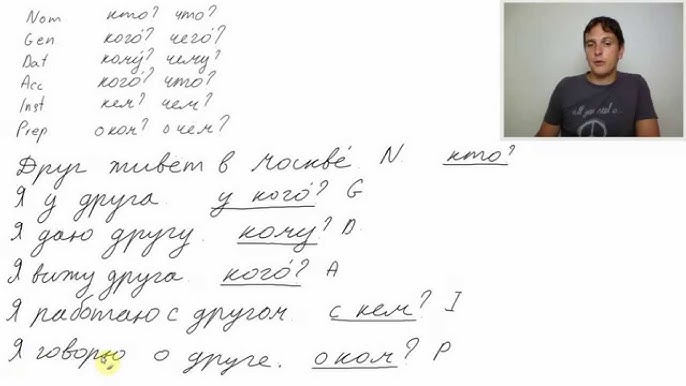 Nom. кто? что?
Gen кого́? чего́?
Dat кому́? чему?
Acc кого́? что?
Inst кем? чем?
Prep о ком? о чем?
Друг живёт в Москве́. N. кто?
Я у друга. у кого́? G
Я даю другу. кому? D.
Я вижу друга. кого́? A
Я работаю с другом. с кем? I
Я говорю о друге. о ком? P
all you need is...